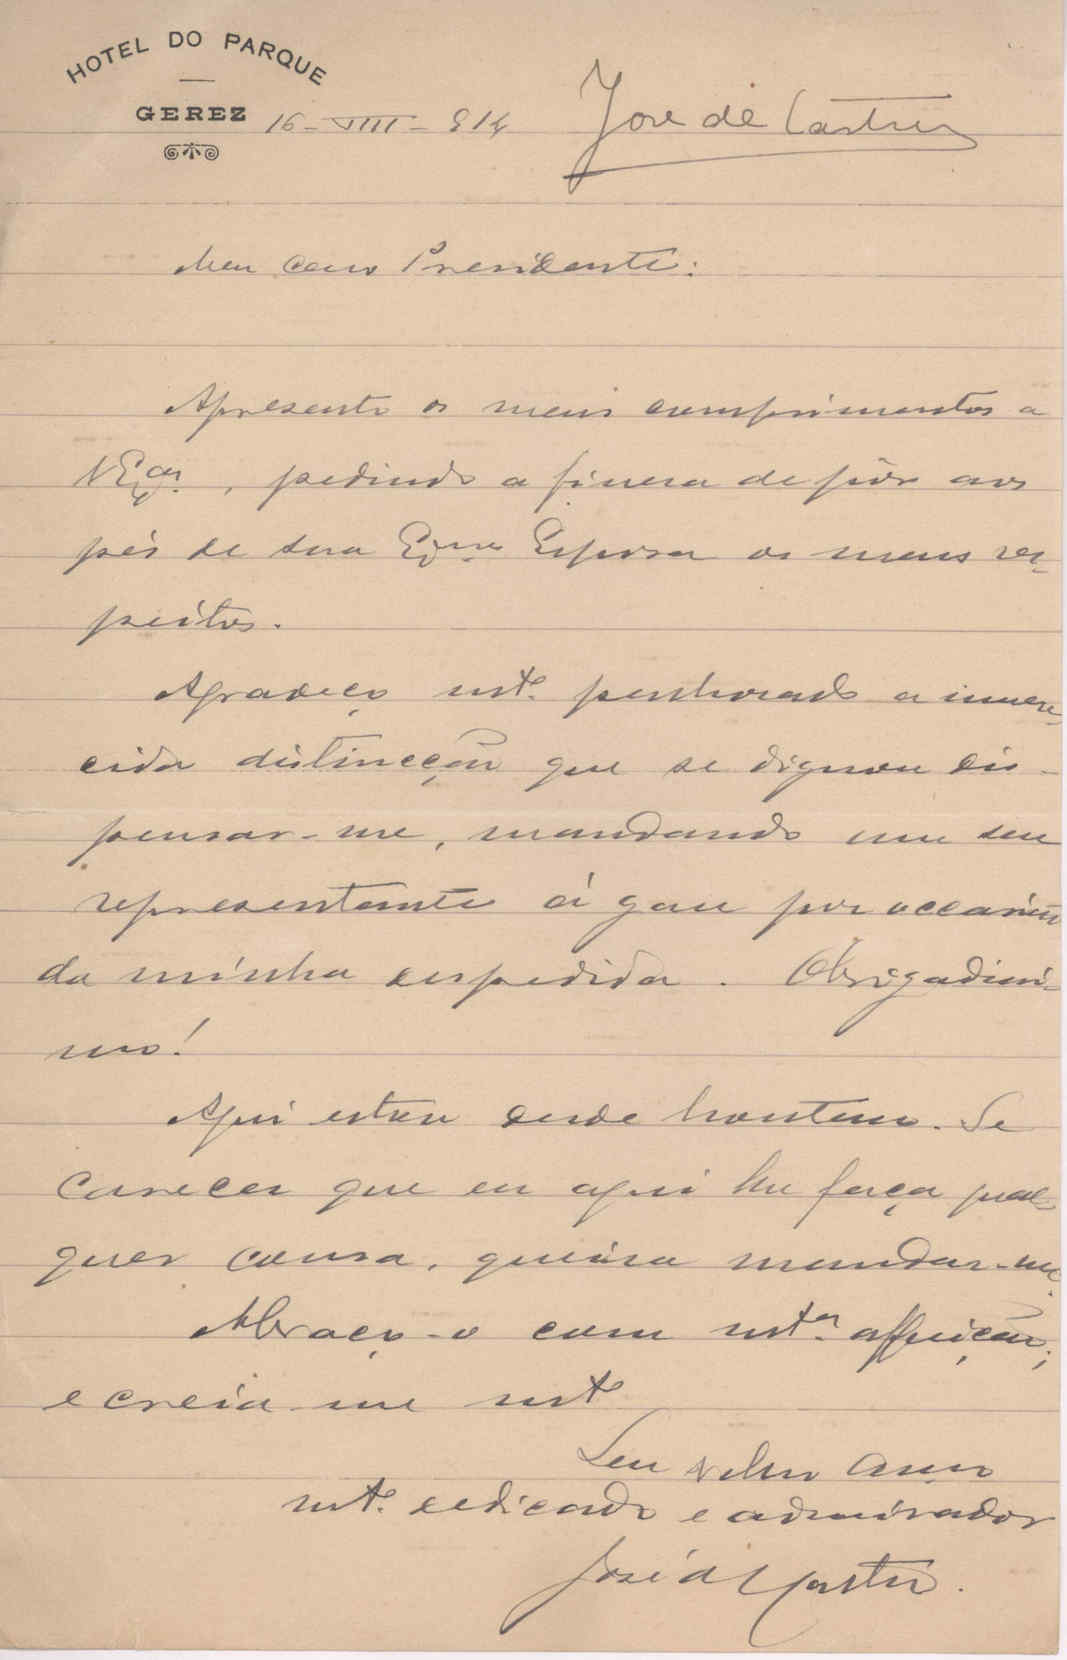 HOTEL DO PARQUE
GEREZ 16-VIII-914
José de Castro
Meu caro Presidente:
Apresento os meus cumprimentos a
V Exª., pedindo a fineza de pôr aos
pés de sua Exma. Esposa os meus res-
peitos.
Agradeço mtº. penhorado a immere-
cida distincção que se dignou dis-
pensar-me, mandando um seu
representante á gare por occasião
da minha despedida. Obrigadissi-
mo!
Aqui estou desde hontem. Se
carecer que eu aqui lhe faça qual-
quer cousa, queira mandar-me.
Abraço-o com mtª. affeição;
e creia-me mtº
Seu velho amº
mtº. dedicado e admirador
José de Castro.